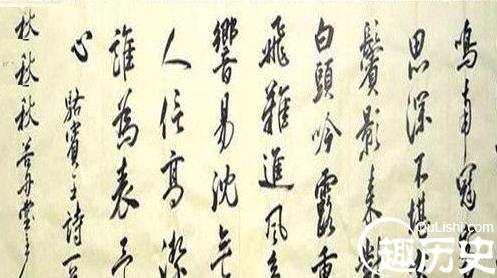 鳴南冠
思深不堪
鬢影来
白頭吟露重
飛難進風
響易沈無
人信高潔
誰為表予
心 駱賓王詩一
秋秋秋
趣历史
QuLiShi.com